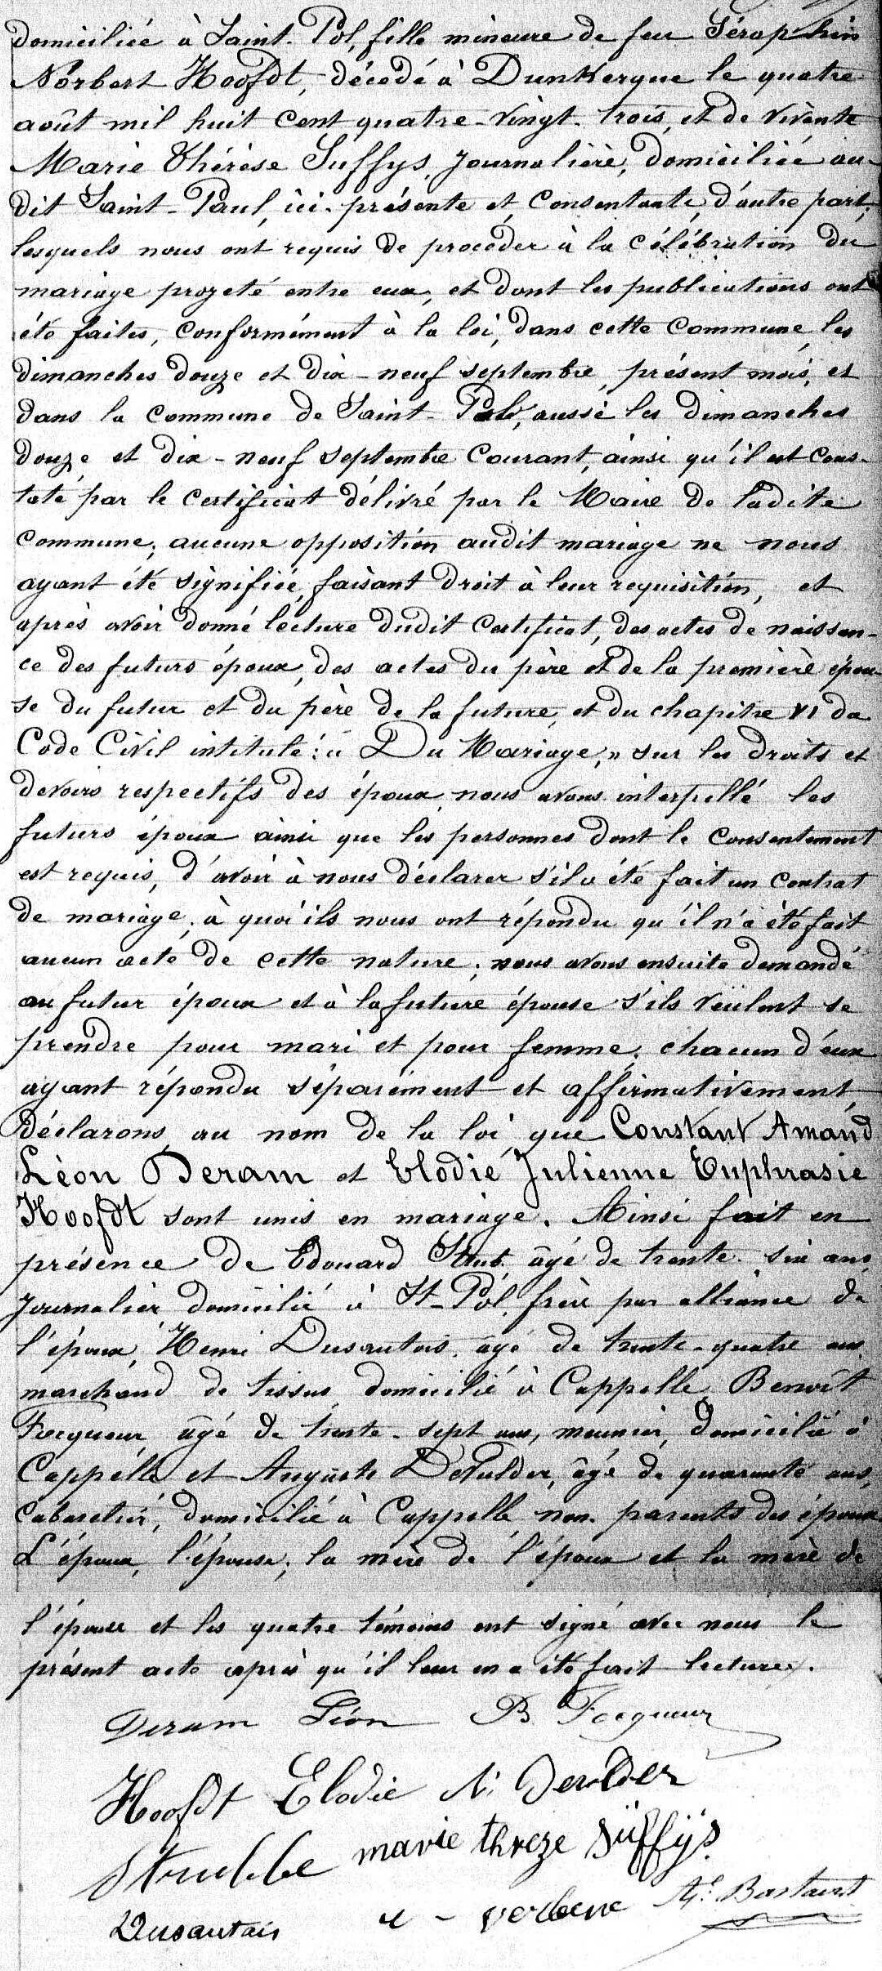 domiciliée à Saint-Pol, fille mineure de feu Séraphin
Norbert Hoofdt, décédé à Dunkerque le quatre
août mil huit cent quatre-vingt-trois, et de vivante
Marie Thérèse Suffys, Journalière, domiciliée au-
dit Saint-Paul, ici présente et consentante, d'autre part;
lesquels nous ont requis de procéder à la célébration du
mariage projeté entre eux, et dont les publications ont
été faites, conformément à la loi, dans cette commune, les
dimanches douze et dix-neuf septembre, présent mois, et
dans la commune de Saint-Pol, aussi les dimanches
douze et dix-neuf septembre courant, ainsi qu'il est cons-
taté par le certificat délivré par le Maire de ladite
commune; aucune opposition audit mariage ne nous
ayant été signifiée, faisant droit à leur requisition, et
après avoir donné lecture dudit certificat, des actes de naissan-
ce des futurs époux, des actes du père et de la première épou-
se du futur et du père de la future, et du chapitre VI du
Code Civil intitulé: « Du Mariage, » sur les droits et
devoirs respectifs des époux, nous avons interpellé les
futurs époux ainsi que les personnes dont le consentement
est requis, d'avoir à nous déclarer s'il a été fait un contrat
de mariage; à quoi ils nous ont répondu qu'il n'a été fait
aucun acte de cette nature; nous avons ensuite demandé
au futur époux et à la future épouse s'ils veulent se
prendre pour mari et pour femme; chacun d'eux
ayant répondu séparément et affirmativement
déclarons au nom de la loi que Constant Amand
Léon Deram et Elodie Julienne Euphrasie
Hoofdt sont unis en mariage. Ainsi fait en
présence de Edouard âgé de trente-six ans
Journalier domicilié à St-Pol, frère par alliance de
l'époux, Henri Dusautois, âgé de trente-quatre ans
marchand de tissus domicilié à Cappelle, Benoît
Focqueur âgé de trente-sept ans, meunier, domicilié à
Cappelle et Auguste DeVulder, âgé de quarante ans,
cabaretier, domicilié à Cappelle non parents des époux
L'époux, l'épouse, la mère de l'époux et la mère de
l'épouse et les quatre témoins ont signé avec nous le
présent acte après qu'il leur en a été fait lecture.
Deram Léon B. Focqueur
Hoofdt Elodie
Strubbe marie threze süffÿs
Dusautois